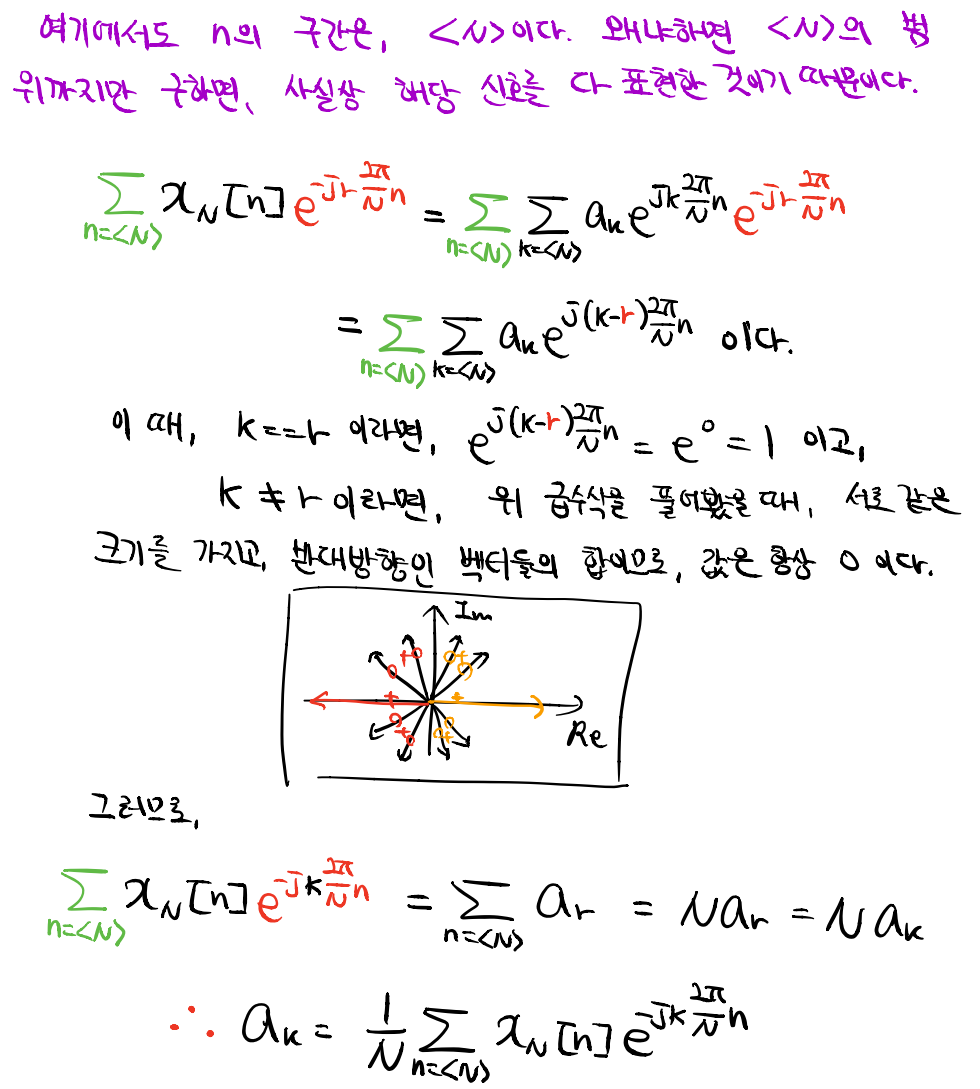 여기에서도 n의 구간은, <N>이다. 왜냐하면 <N>의 범
위까지만 구하면, 사실상 해당 신호를 다 표현한 것이기 때문이다.
∑_{n=<N>} x_N[n] e^{-jr\frac{2π}{N}n} = ∑_{n=<N>} ∑_{k=<N>} a_k e^{jk\frac{2π}{N}n} e^{-jr\frac{2π}{N}n}
= ∑_{n=<N>} ∑_{k=<N>} a_k e^{j(k-r)\frac{2π}{N}n} 이다.
이 때, k==r 이라면, e^{j(k-r)\frac{2π}{N}n} = e^0 = 1 이고,
k ≠ r 이라면, 위 급수식을 풀어봤을 때, 서로 같은
크기를 가지고, 반대방향인 벡터들의 합이므로, 값은 항상 0 이다.
Im
Re
그러므로,
∑_{n=<N>} x_N[n] e^{-jk\frac{2π}{N}n} = ∑_{n=<N>} a_r = N a_r = N a_k
∴ a_k = \frac{1}{N} ∑_{n=<N>} x_N[n] e^{-jk\frac{2π}{N}n}